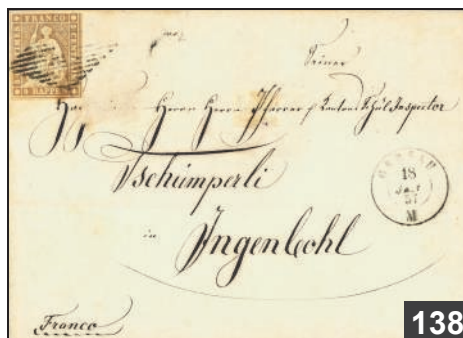 FRANCO
5 RAPPEN
Seiner
Herrn Herrn Pfarrer & Kantons Schul Inspector
Tschümperli
in
Ingenbohl
GERSAU
18
57
M
Franco
138